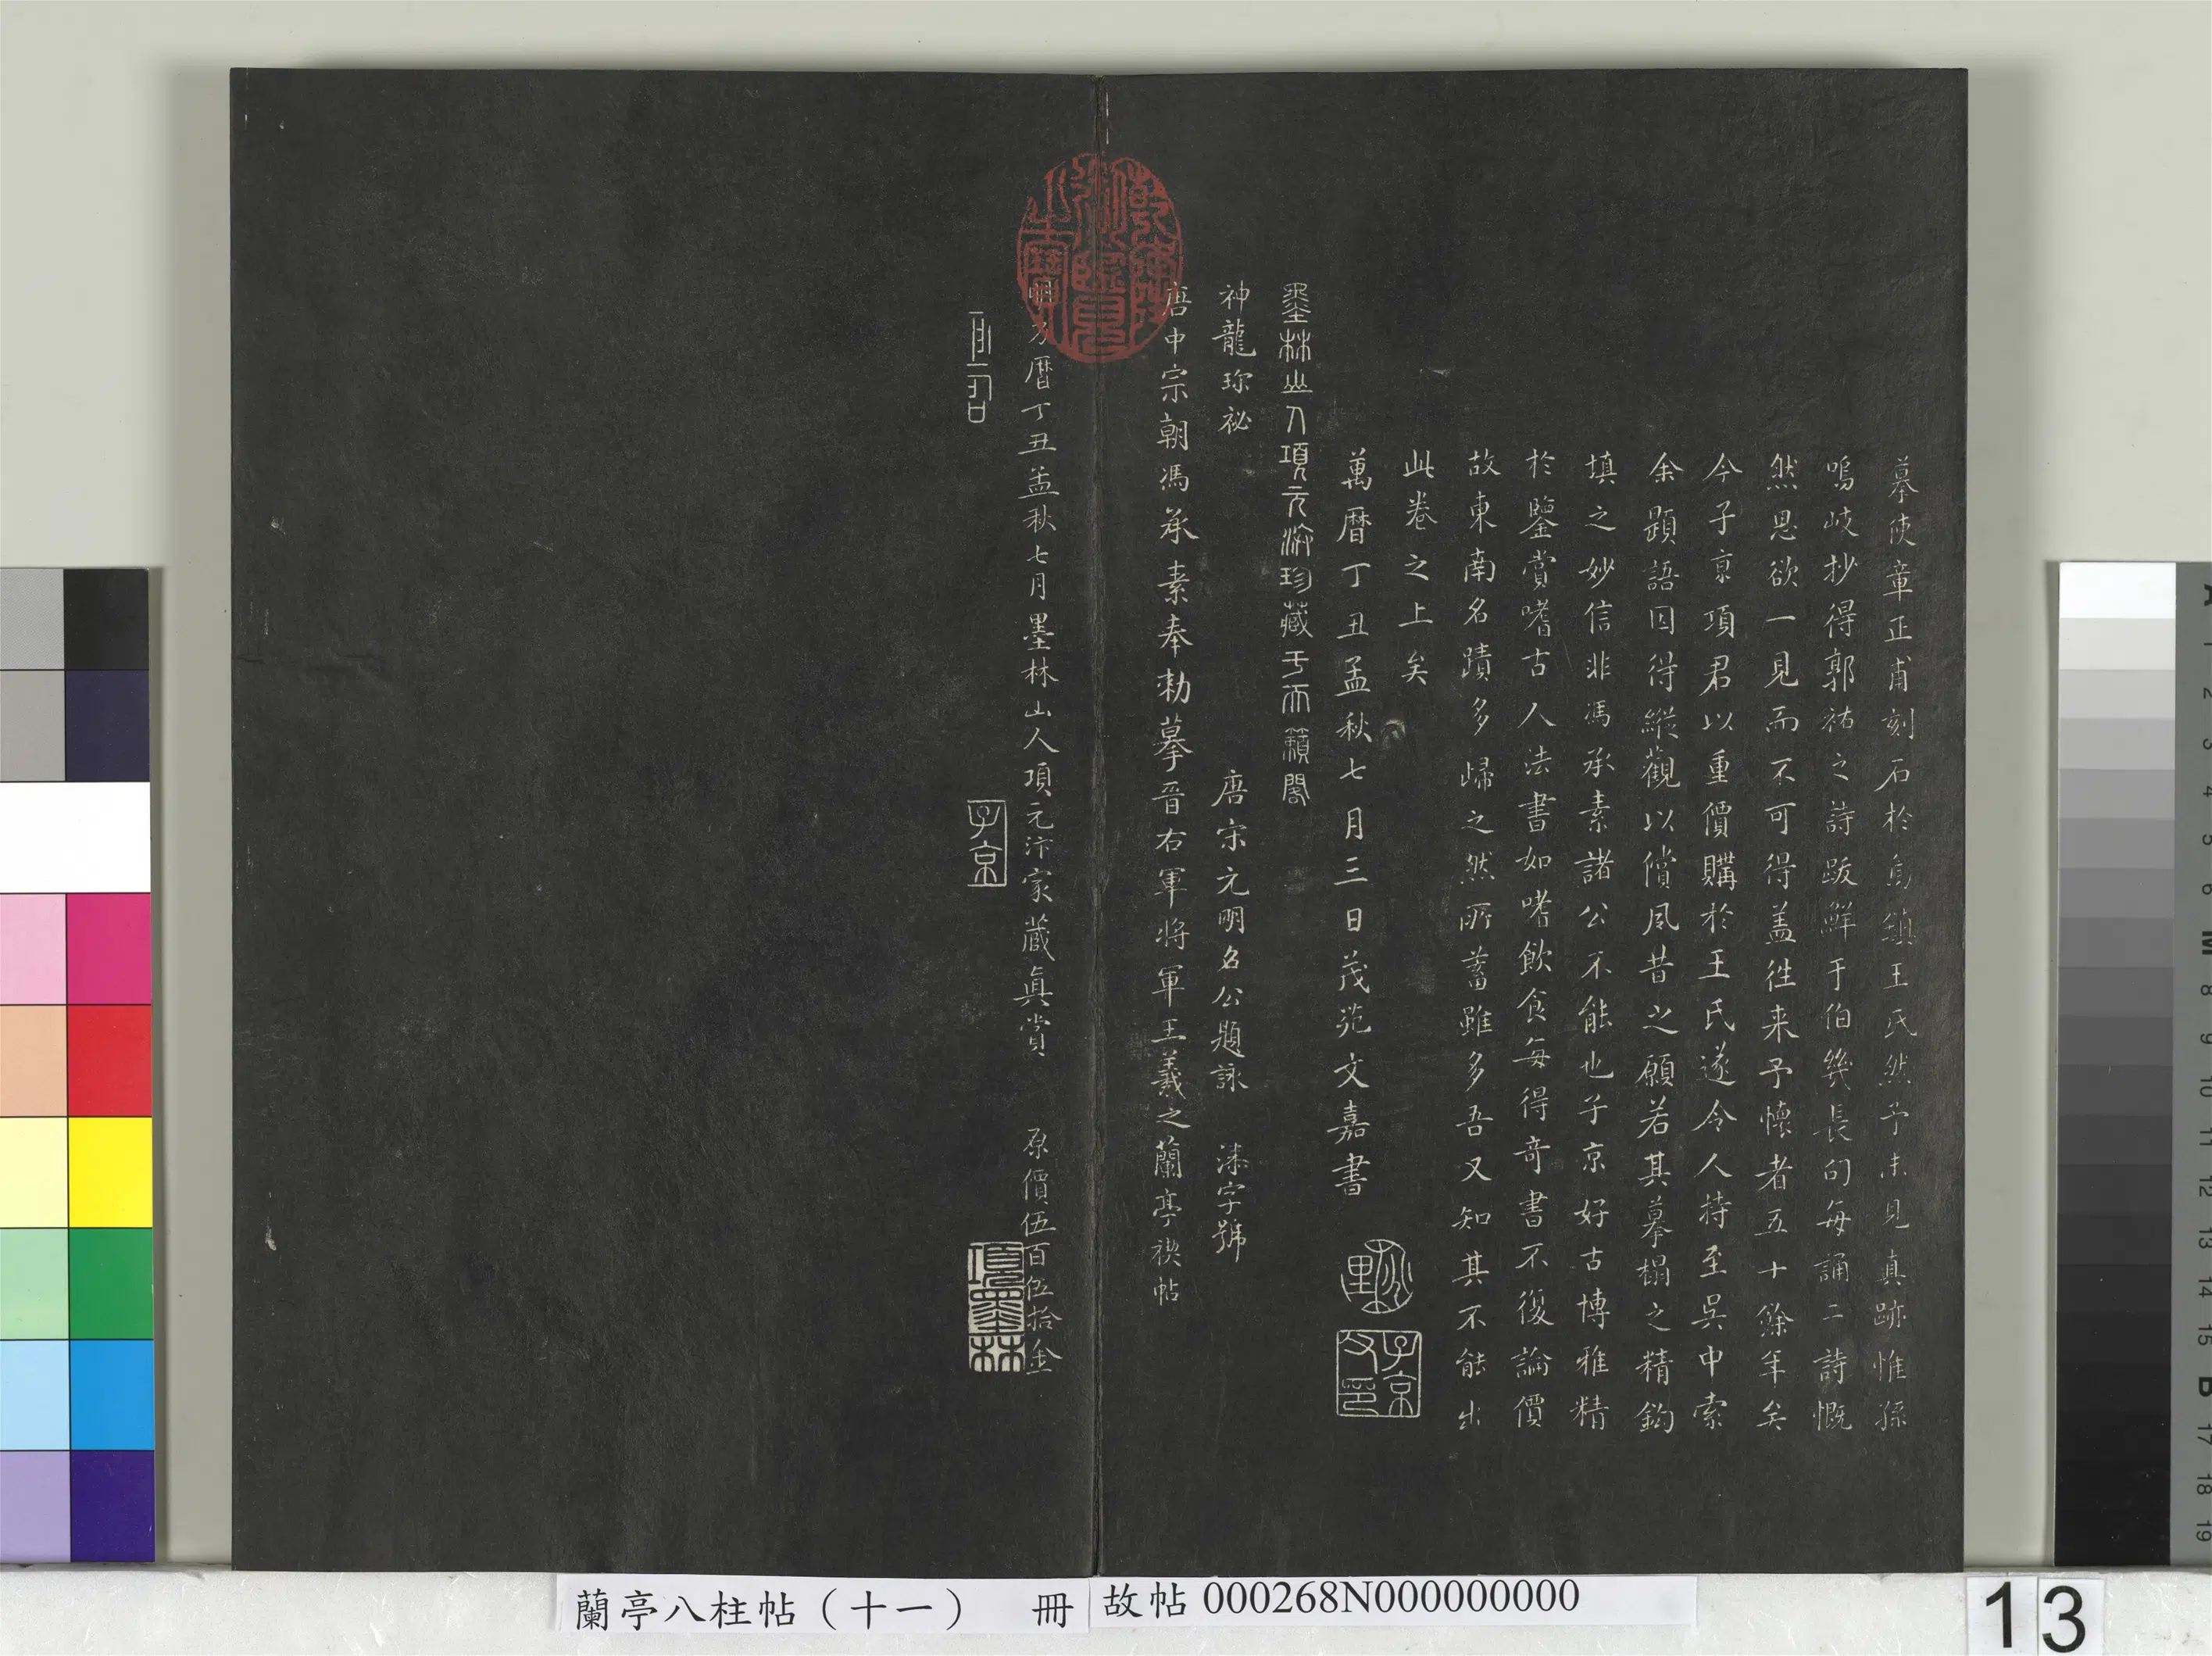 摹使章正甫刻石於烏鎮王氏然予未見真跡惟孫
鳴岐抄得郭祐之詩跋鮮于伯幾長句每誦二詩慨
然思欲一見而不可得蓋徃来予懷者五十餘年矣
今子京項君以重價購於王氏遂令人持至吳中索
余題語因得縱觀以償夙昔之願若其摹榻之精鈎
填之妙信非馮承素諸公不能也子京好古博雅精
於鑒賞嗜古人法書如嗜飲食每得奇書不復論價
故東南名蹟多歸之然所蓄雖多吾又知其不能出
此卷之上矣
萬曆丁丑孟秋七月三日茂苑文嘉書
文子京印
墨林山人項元汴珍藏于天籟閣
神龍珎祕 唐宋元明名公題詠 漆字號
唐中宗朝馮承素奉勅摹晉右軍將軍王羲之蘭亭禊帖
明万曆丁丑孟秋七月墨林山人項元汴家藏眞賞 原價伍百伍拾金
子京
項墨林
蘭亭八柱帖（十一） 冊 故帖 000268N000000000
13
A 1 2 3 4 5 6 M 8 9 10 11 12 13 14 15 B 17 18 19